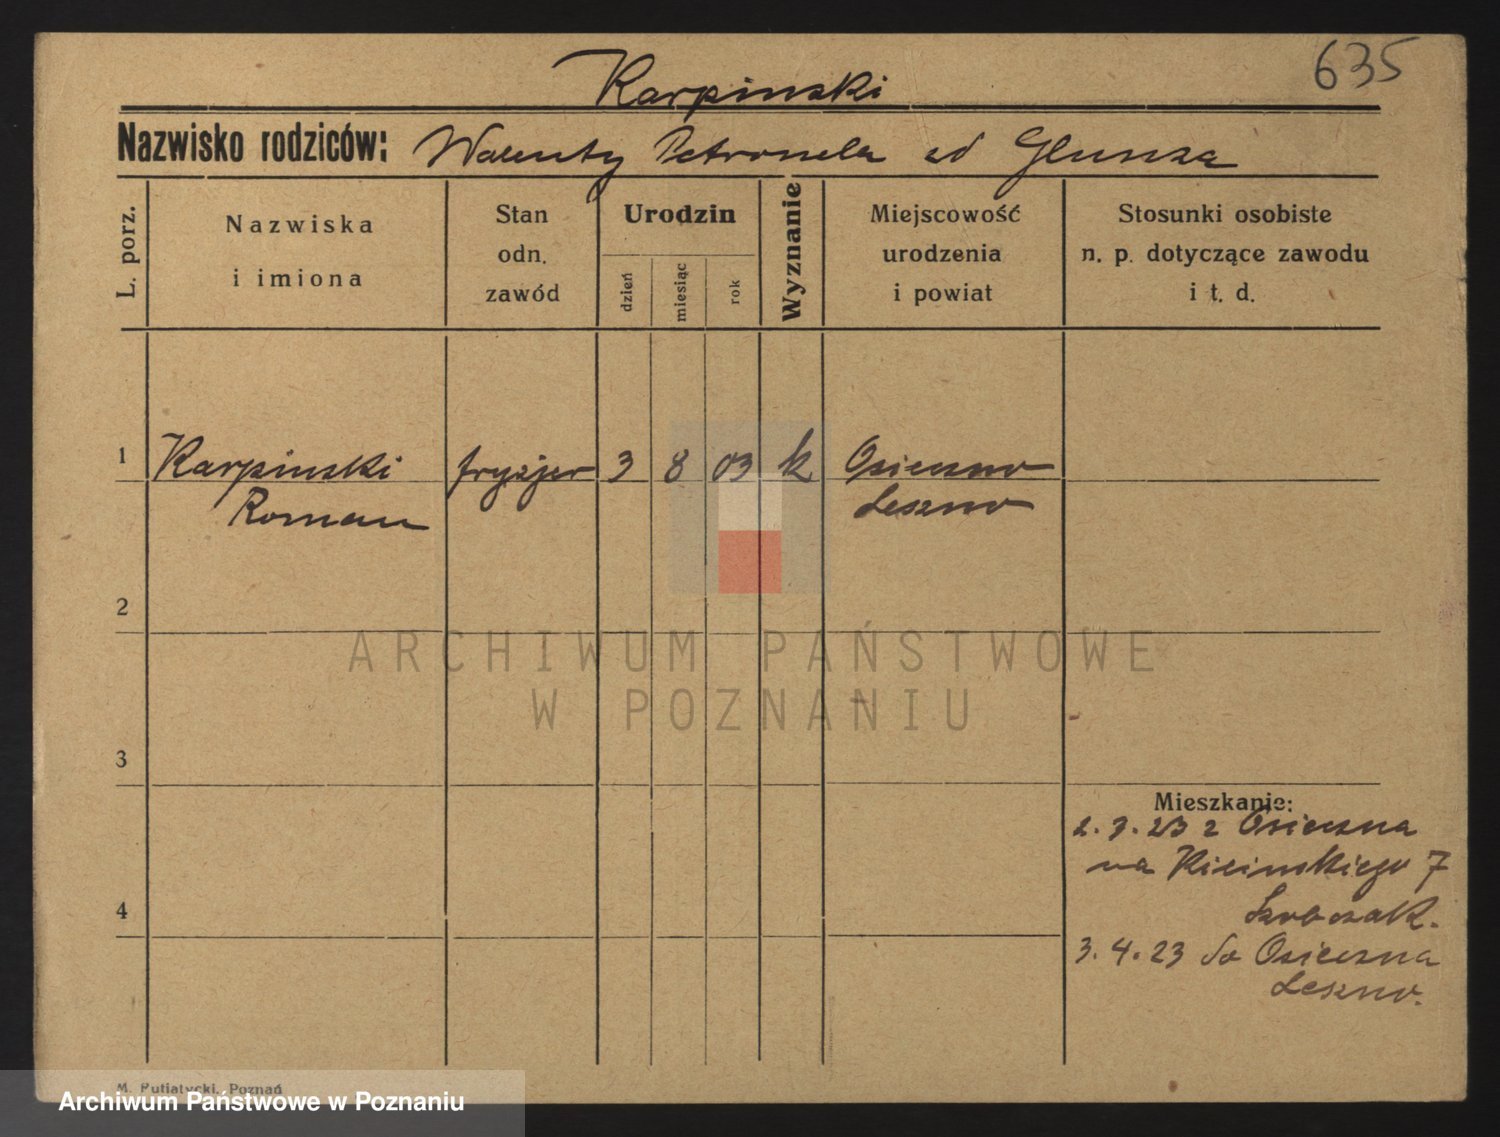 635
Karpinski
Nazwisko rodziców: Walenty Petronela od
L. porz.
Nazwiska i imiona
Stan odn. zawód
Urodzin
dzień
miesiąc
rok
Wyznanie
Miejscowość urodzenia i powiat
Stosunki osobiste n. p. dotyczące zawodu i t. d.
1 Karpinski fryzjer 3 8 03 k Osieczno
Roman Leszno
2
3
Mieszkanie:
23 z Osieczna
na 7
4
3. 4. 23 do Osieczna
Leszno.
ARCHIWUM PAŃSTWOWE
W POZNANIU
M. Putiatycki, Poznań
Archiwum Państwowe w Poznaniu